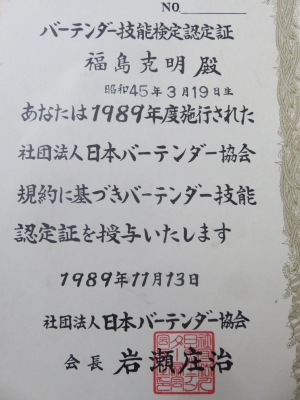 NO
バーテンダー技能検定認定証
福島克明 殿
昭和45年3月19日生
あなたは1989年度施行された
社団法人日本バーテンダー協会
規約に基づきバーテンダー技能
認定証を授与いたします
1989年11月13日
社団法人日本バーテンダー協会
会長 岩瀬庄治